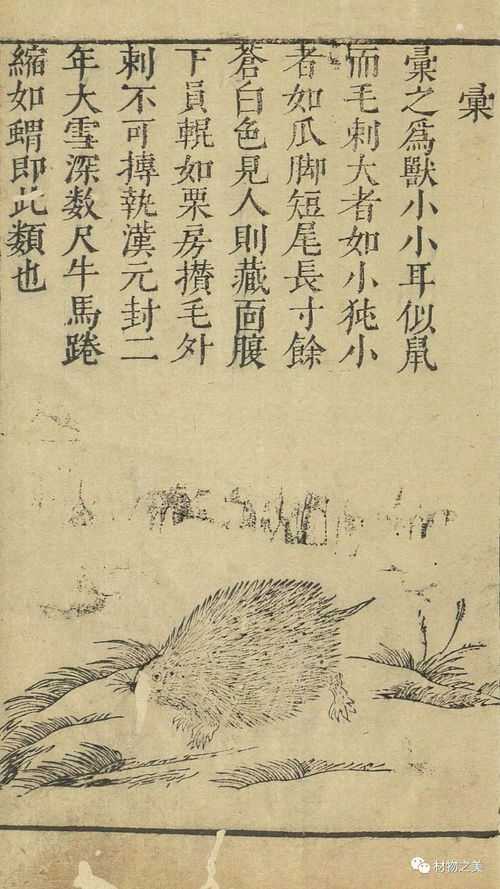 彙
彙之為獸小小耳似鼠
而毛刺大者如小㹠小
者如瓜脚短尾長寸餘
蒼白色見人則藏面腹
下員輥如栗房攢毛外
刺不可摶執漢元封二
年大雪深数尺牛馬踡
縮如蝟即此類也
材物之美